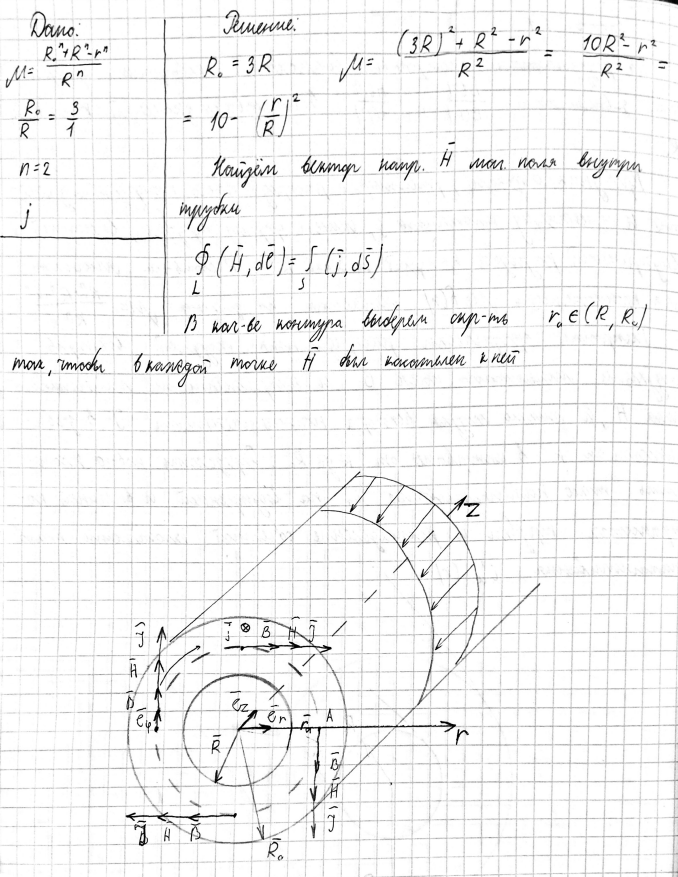 Дано:
μ = (R₀ⁿ + Rⁿ - rⁿ) / Rⁿ
R₀/R = 3/1
n = 2
j
Решение:
R₀ = 3R μ = ((3R)² + R² - r²) / R² = (10R² - r²) / R² =
= 10 - (r/R)²
Найдём вектор напр. H̄ маг. поля внутри
трубки
∮_L (H̄, dℓ̄) = ∫_S (j̄, dS̄)
В кач-ве контура выберем окр-ть r₀ ∈ (R, R₀)
так, чтобы в каждой точке H̄ был касателен к ней
Z
J̄ j̄ ⊗ B̄ H̄ J̄
H̄
B̄
ē_φ ē_z ē_r r̄₀ A r
R̄ B̄
H̄
J̄ H B̄ J̄
R̄₀